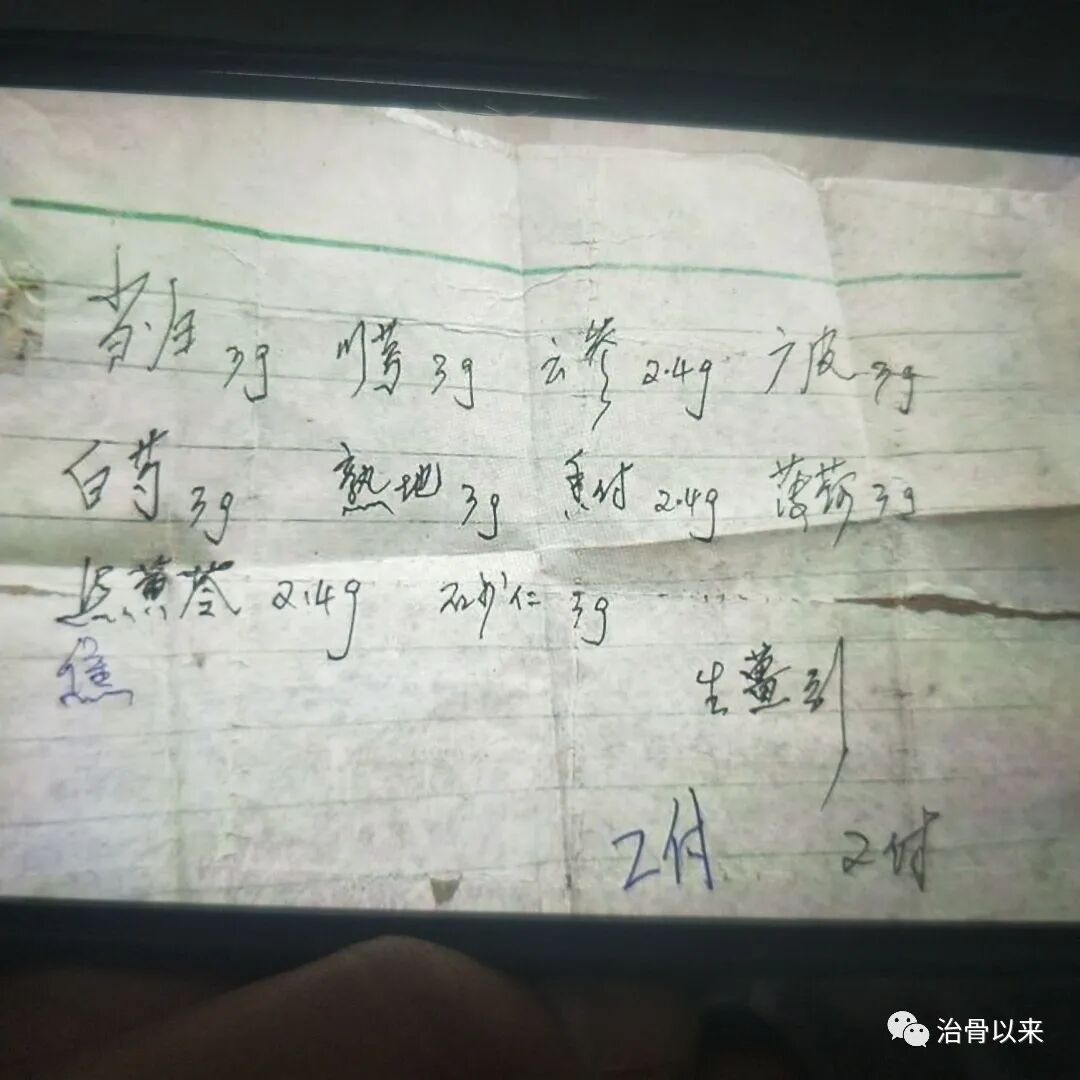 当归 3g 川芎 3g 云苓 2.4g 广皮 3g
白芍 3g 熟地 3g 香付 2.4g 薄荷 3g
黄芩 2.4g 砂仁 3g
焦
生薑引
2付 2付
治骨以来